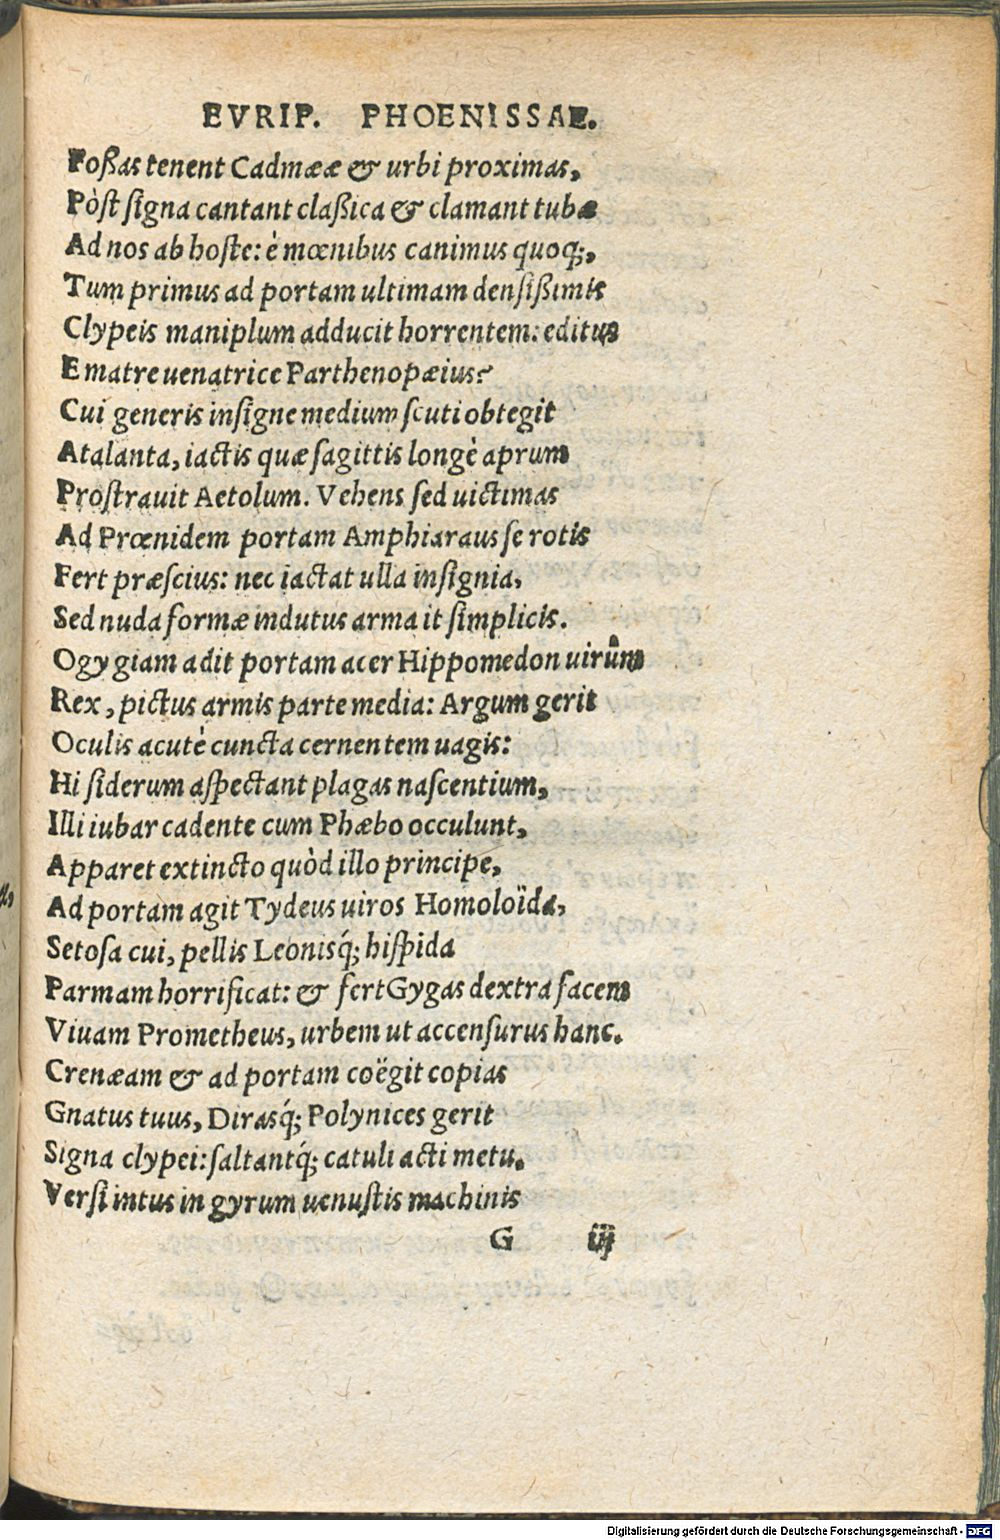 EVRIP. PHOENISSAE.
Foßas tenent Cadmææ & urbi proximas,
Pòst signa cantant claßica & clamant tubæ
Ad nos ab hoste: è mœnibus canimus quoq;,
Tum primus ad portam ultimam densißimis
Clypeis maniplum adducit horrentem: editus
E matre uenatrice Parthenopæius?
Cui generis insigne medium scuti obtegit
Atalanta, iactis quæ sagittis longè aprum
Prostrauit Aetolum. Vehens sed uictimas
Ad Prœnidem portam Amphiaraus se rotis
Fert præscius: nec iactat ulla insignia,
Sed nuda formæ indutus arma it simplicis.
Ogygiam adit portam acer Hippomedon uirûm
Rex, pictus armis parte media: Argum gerit
Oculis acutè cuncta cernentem uagis:
Hi siderum aspectant plagas nascentium,
Illi iubar cadente cum Phæbo occulunt,
Apparet extincto quòd illo principe,
Ad portam agit Tydeus uiros Homoloïda,
Setosa cui, pellis Leonisq́; hispida
Parmam horrificat: & fert Gygas dextra facem
Viuam Prometheus, urbem ut accensurus hanc.
Crenæam & ad portam coëgit copias
Gnatus tuus, Dirasq́; Polynices gerit
Signa clypei: saltantq́; catuli acti metu.
Versi intus in gyrum uenustis machinis
G iij
Digitalisierung gefördert durch die Deutsche Forschungsgemeinschaft - DFG